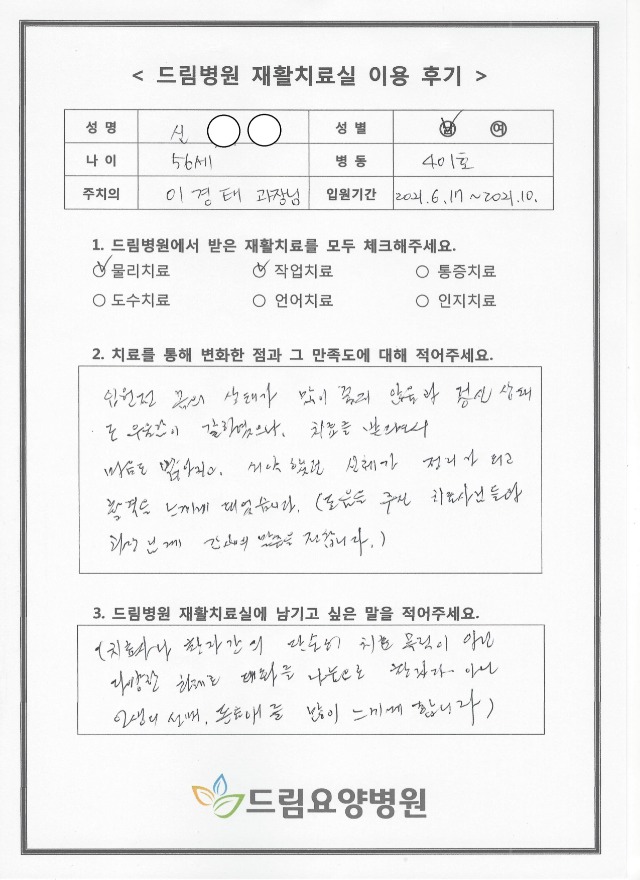 < 드림병원 재활치료실 이용 후기 >
성 명 신 성 별 남 여
나 이 56세 병 동 401호
주치의 이경태 과장님 입원기간 2021.6.17~2021.10.
1. 드림병원에서 받은 재활치료를 모두 체크해주세요.
물리치료 작업치료 통증치료
도수치료 언어치료 인지치료
2. 치료를 통해 변화한 점과 그 만족도에 대해 적어주세요.
입원전 몸의 상태가 많이 좋지 않음과 정신상태
도 우울감이 치료를 받으면서
마음도 밝아지고, 쇠약했던 신체가 정리가 되고
활력을 느끼게 되었습니다. (도움을 주신 치료사님들과
과장님께 감사의 말씀을 전합니다.)
3. 드림병원 재활치료실에 남기고 싶은 말을 적어주세요.
(치료사나 환자간의 단순히 치료 목적이 아닌
다방면 화제로 대화를 나눔으로 환자가 아닌
인생의 선배, 동료애를 많이 느끼게 합니다)
드림요양병원